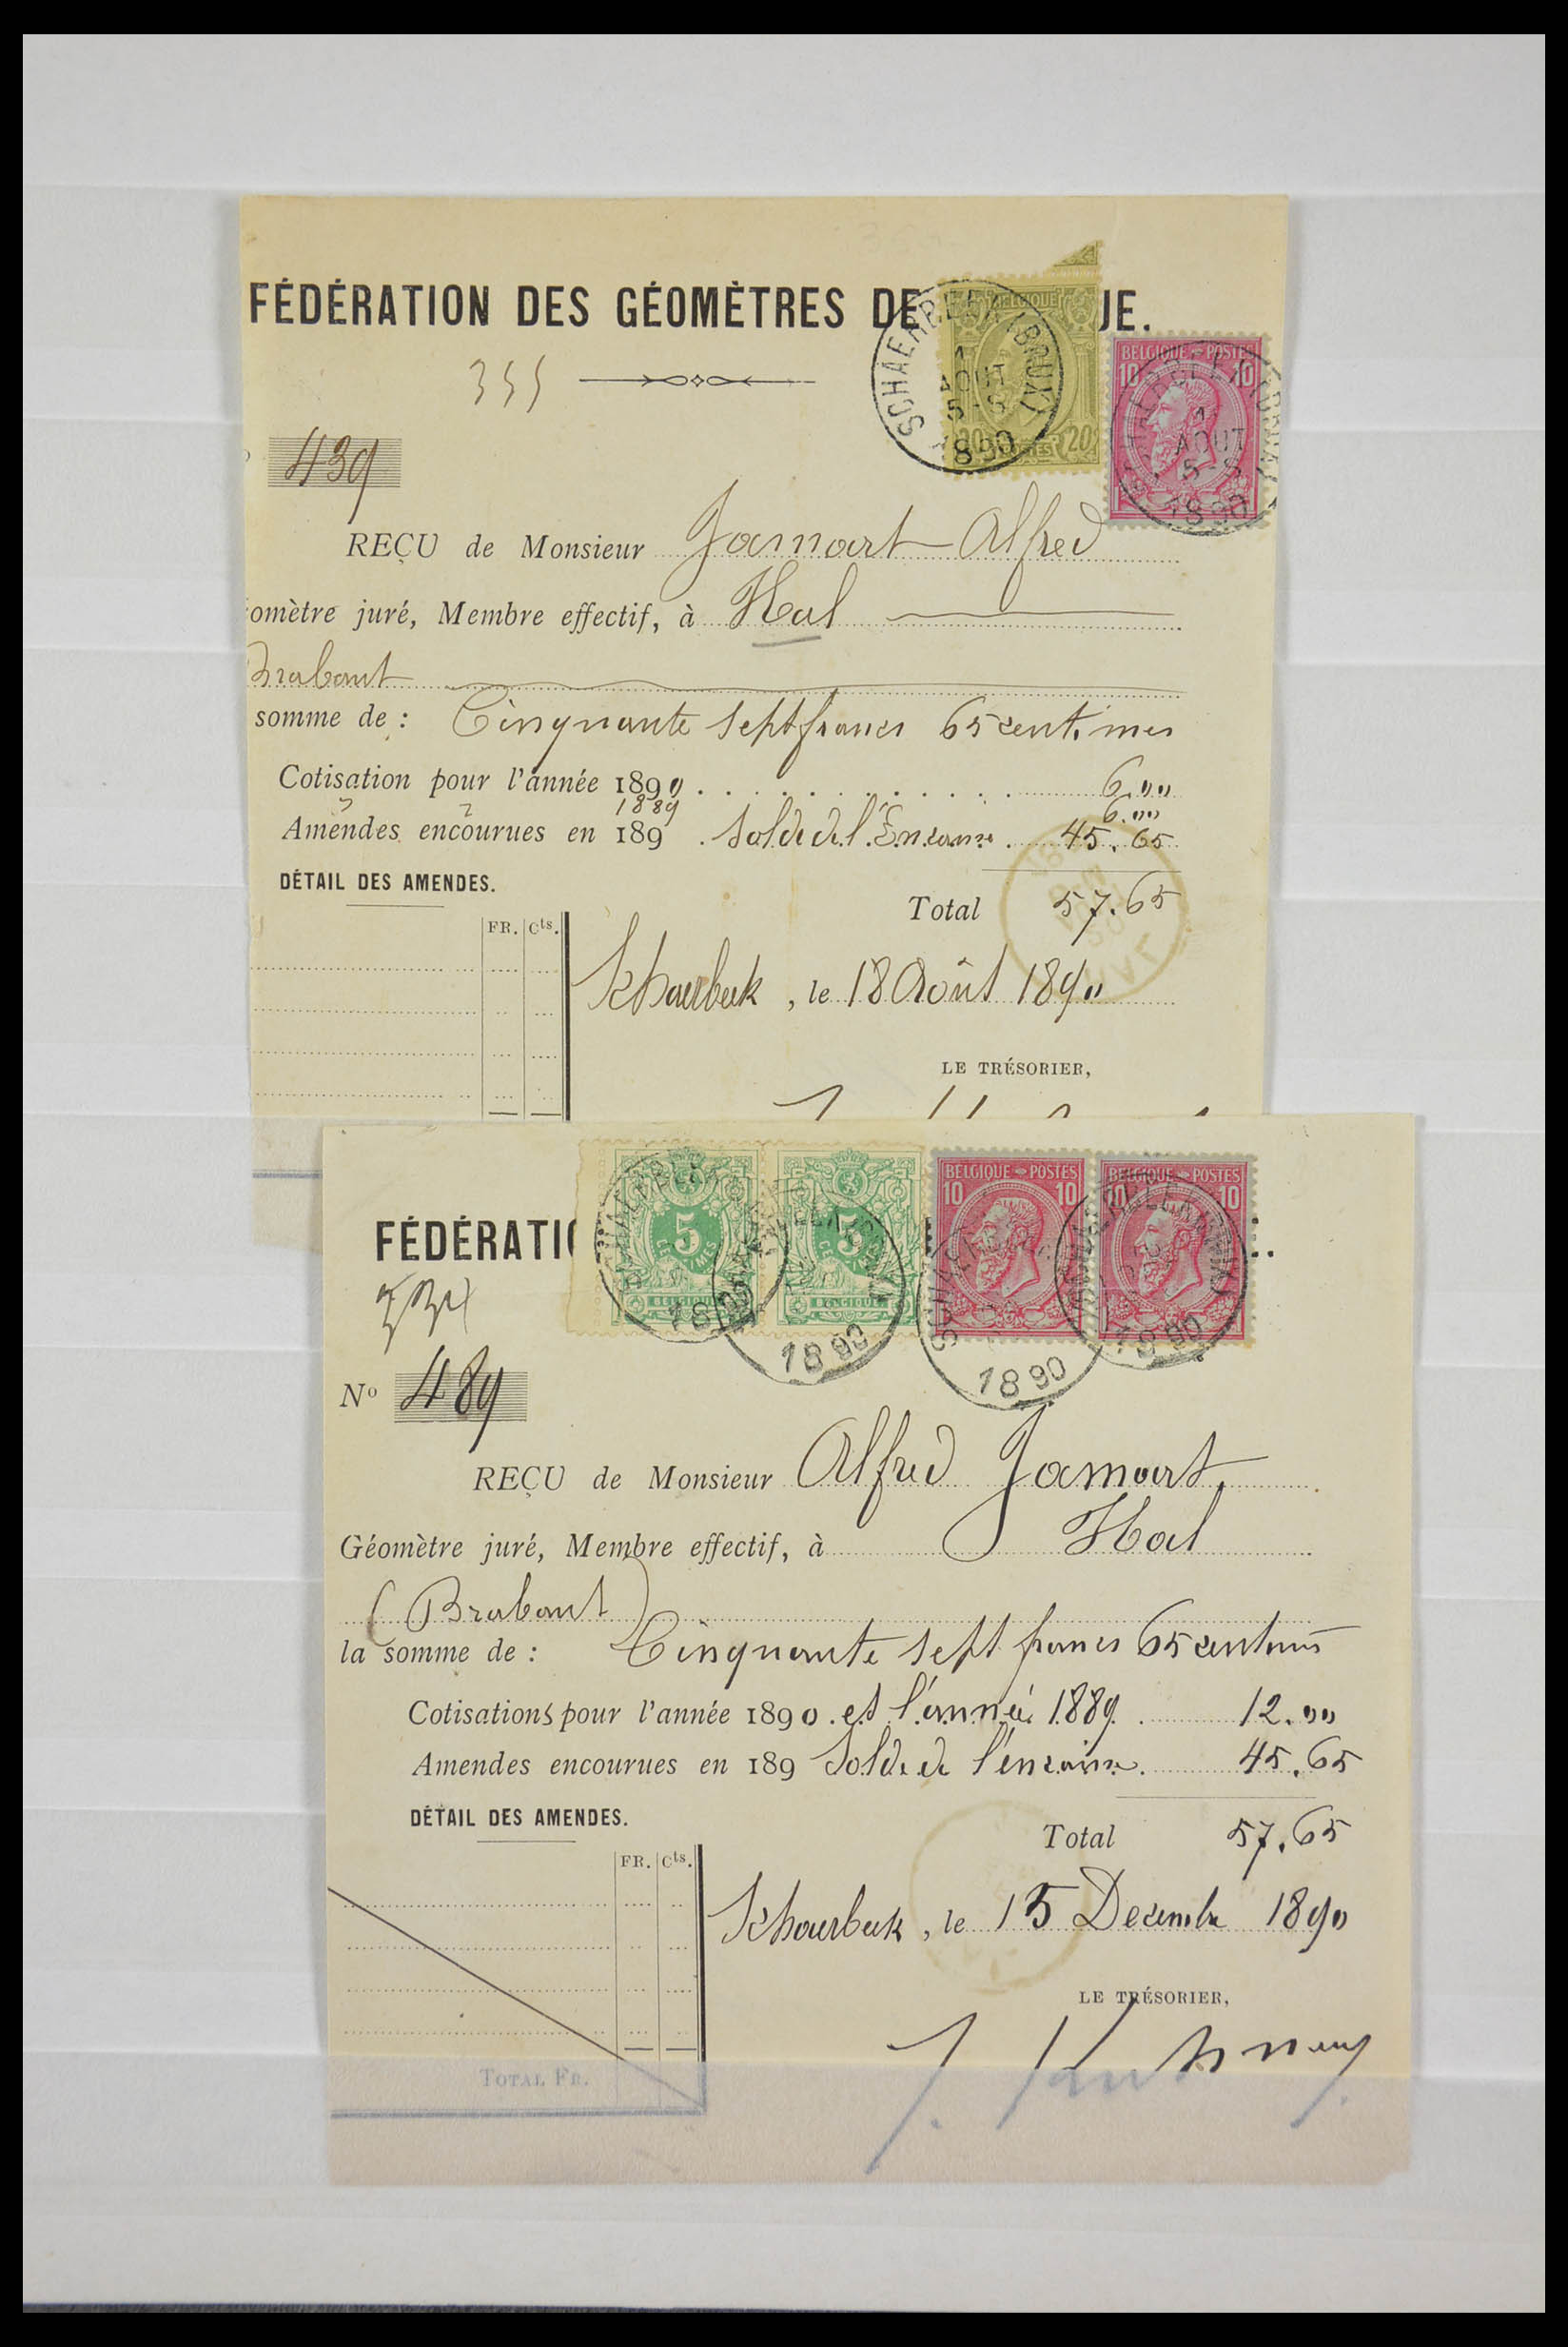 FÉDÉRATION DES GÉOMÈTRES DE UE.
SCHAERBEEK (BRUX)
AOUT
5-S
1890
BELGIQUE
20 20
BELGIQUE POSTES
10 10
AOUT
5-S
1890
355
439
REÇU de Monsieur Jamart Alfred
omètre juré, Membre effectif, à Hal
Brabant
somme de : Cinquante sept francs 65 centimes
Cotisation pour l'année 1890 6.00
1889 6.00
Amendes encourues en 189 Solde de l'Encaisse 45.65
DÉTAIL DES AMENDES.
Total 57.65
FR. Cts.
Schaerbeek, le 18 Août 1890
LE TRÉSORIER,
5 CENTIMES
BELGIQUE
5 CENTIMES
BELGIQUE
BELGIQUE POSTES
10 10
BELGIQUE POSTES
10 10
1890
1890
1890
1890
FÉDÉRATI
No 489
REÇU de Monsieur Alfred Jamart
Géomètre juré, Membre effectif, à Hal
(Brabant)
la somme de : Cinquante sept francs 65 centimes
Cotisations pour l'année 1890 et l'année 1889 12.00
Amendes encourues en 189 Solde de l'encaisse 45.65
DÉTAIL DES AMENDES.
Total 57.65
FR. Cts.
Schaerbeek, le 15 Decembre 1890
LE TRÉSORIER,
TOTAL FR.